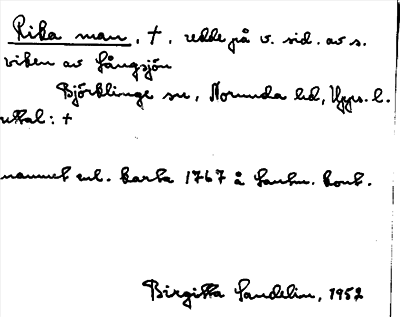 Rika man, †, udde på v. sid. av s.
viken av Långsjön
Björklinge sn, Norunda hd, Upps. l.
uttal: †
namnet enl. karta 1767 å Lantm. kont.
Birgitta Sandelin, 1952